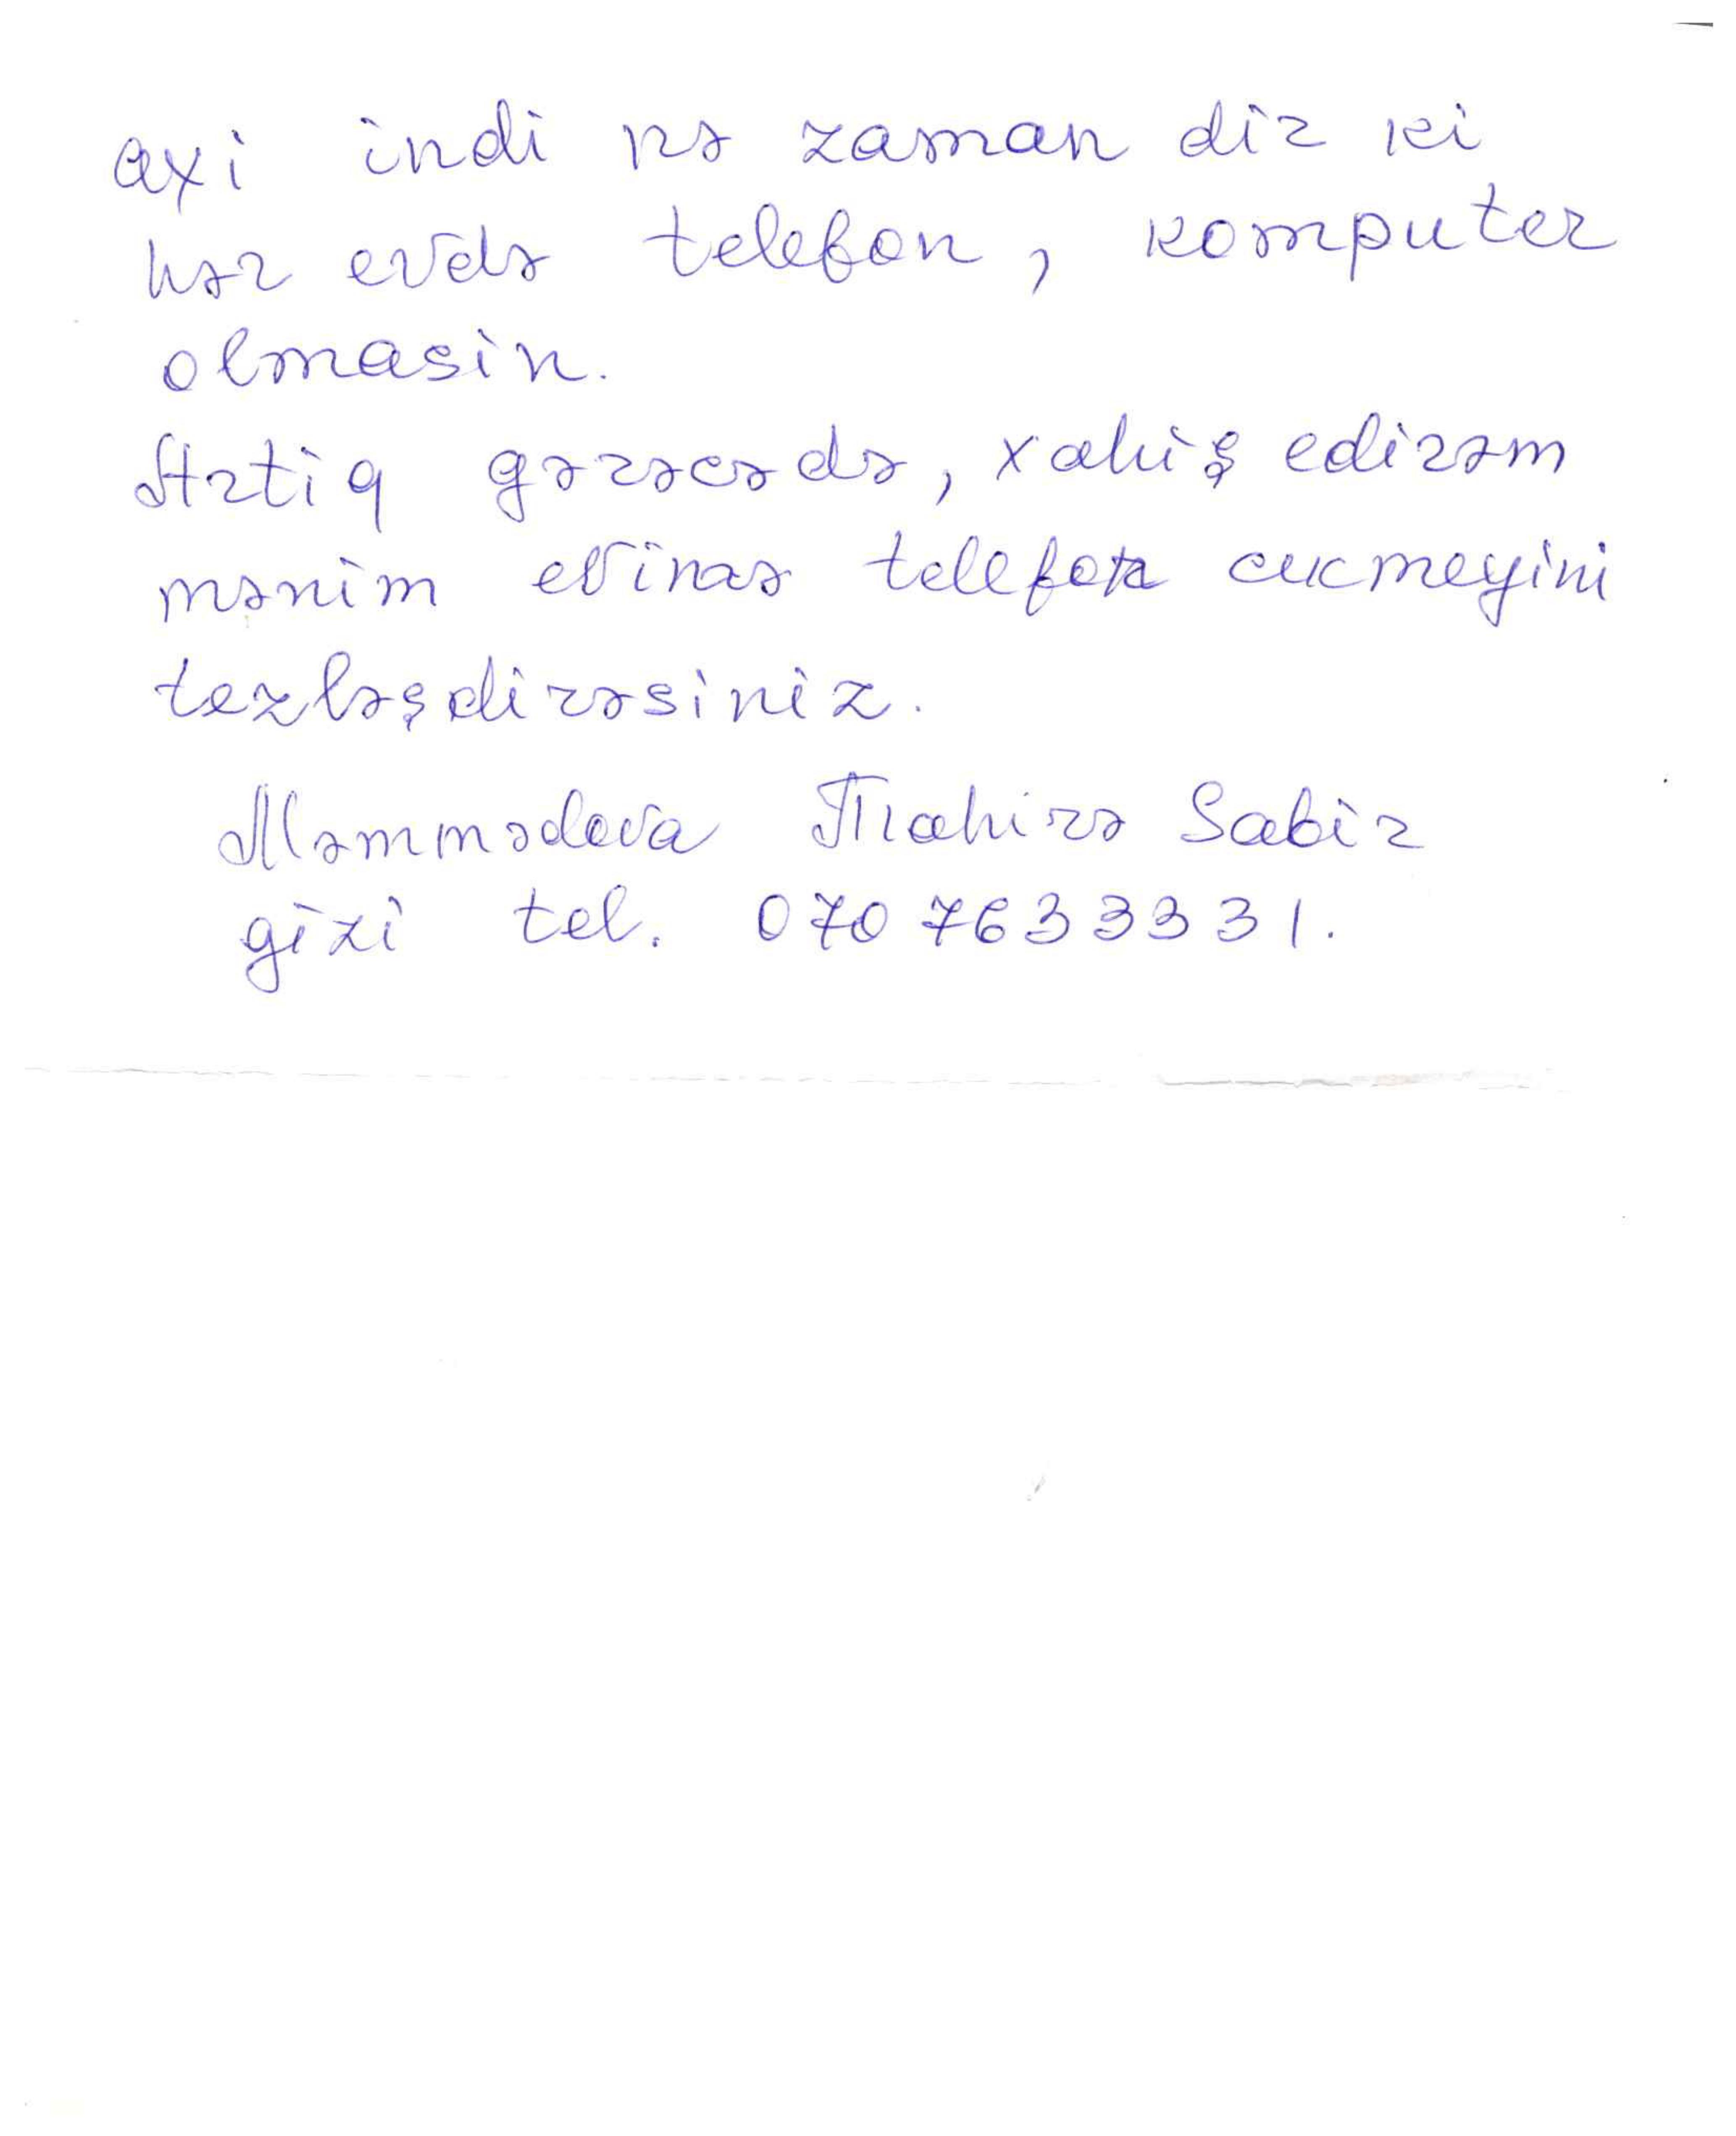 axi indi nə zaman dir ki
hər evdə telefon, komputer
olmasin.
Artiq gərəcədə, xahiş edirəm
mənim evinzə telefon cekmeyini
tezləşdirəsiniz.
Məmmədova Mahirə Sabir
gizi tel. 070 7633331.